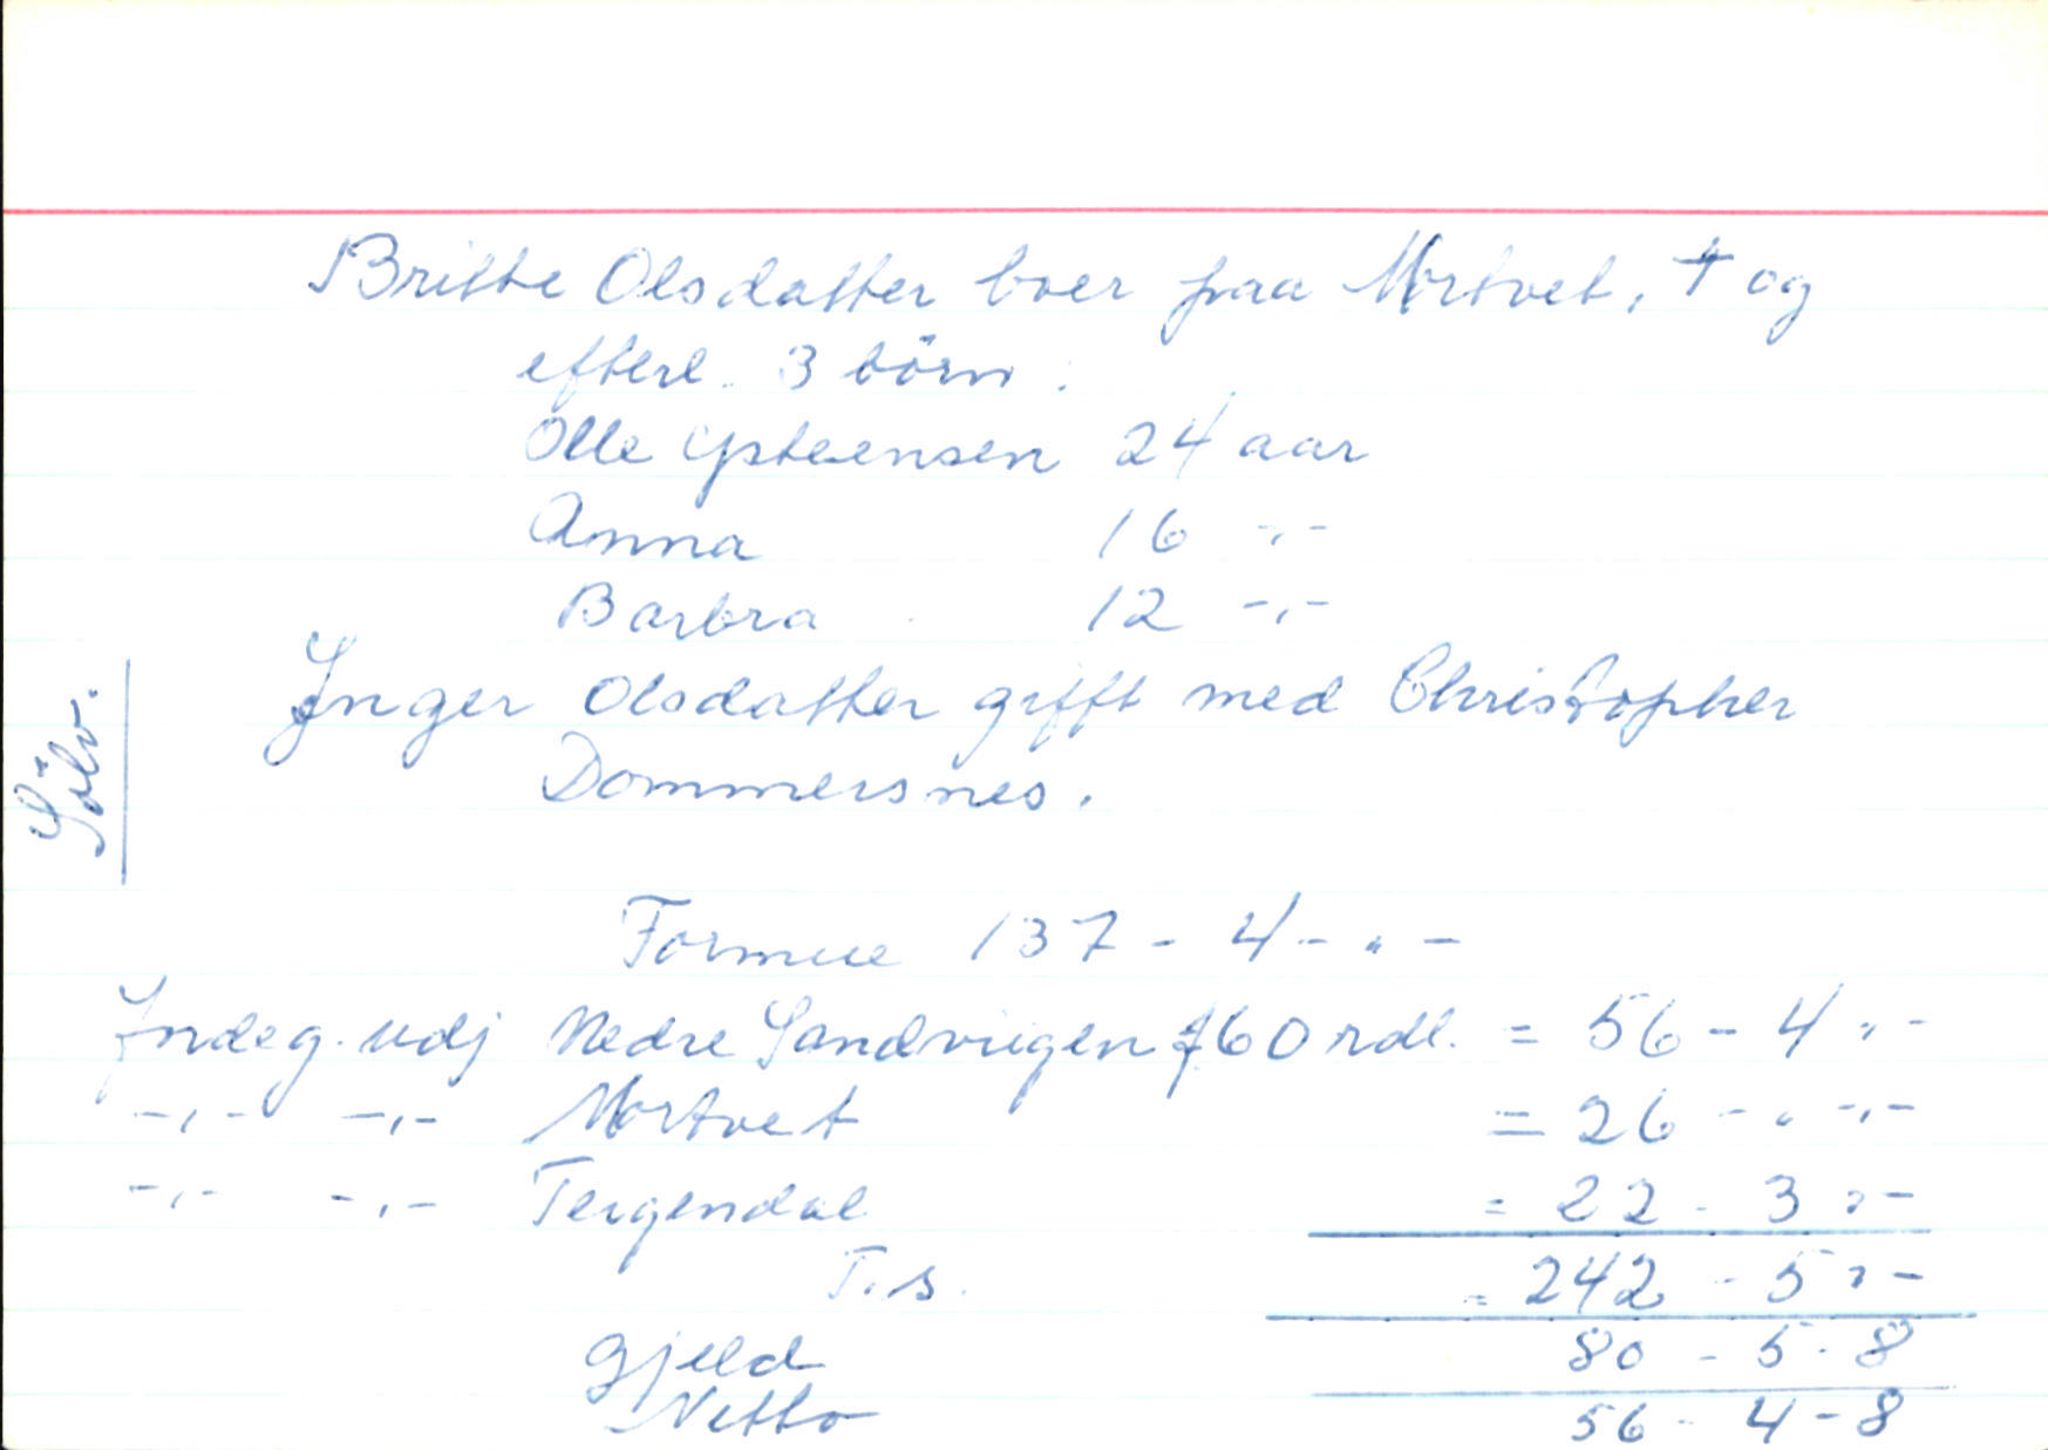 Britte Olsdatter boer paa Mortvet, † og
efterl. 3 börn.
Olle Ysteensen 24 aar
Anna 16 -,-
Barbra 12 -,-
Inger Olsdatter gifft med Christopher
Dommersnes.
Sölv.
Formue 137 - 4 - " -
Indeg. udj Nedre Sandviigen 60 rdl. = 56 - 4 " -
-,- -,- Mortvet = 26 - " -,-
-,- -,- Tergendal = 22 - 3 " -
T.s. = 242 - 5 " -
Gjeld 80 - 5 - 8
Netto 56 - 4 - 8